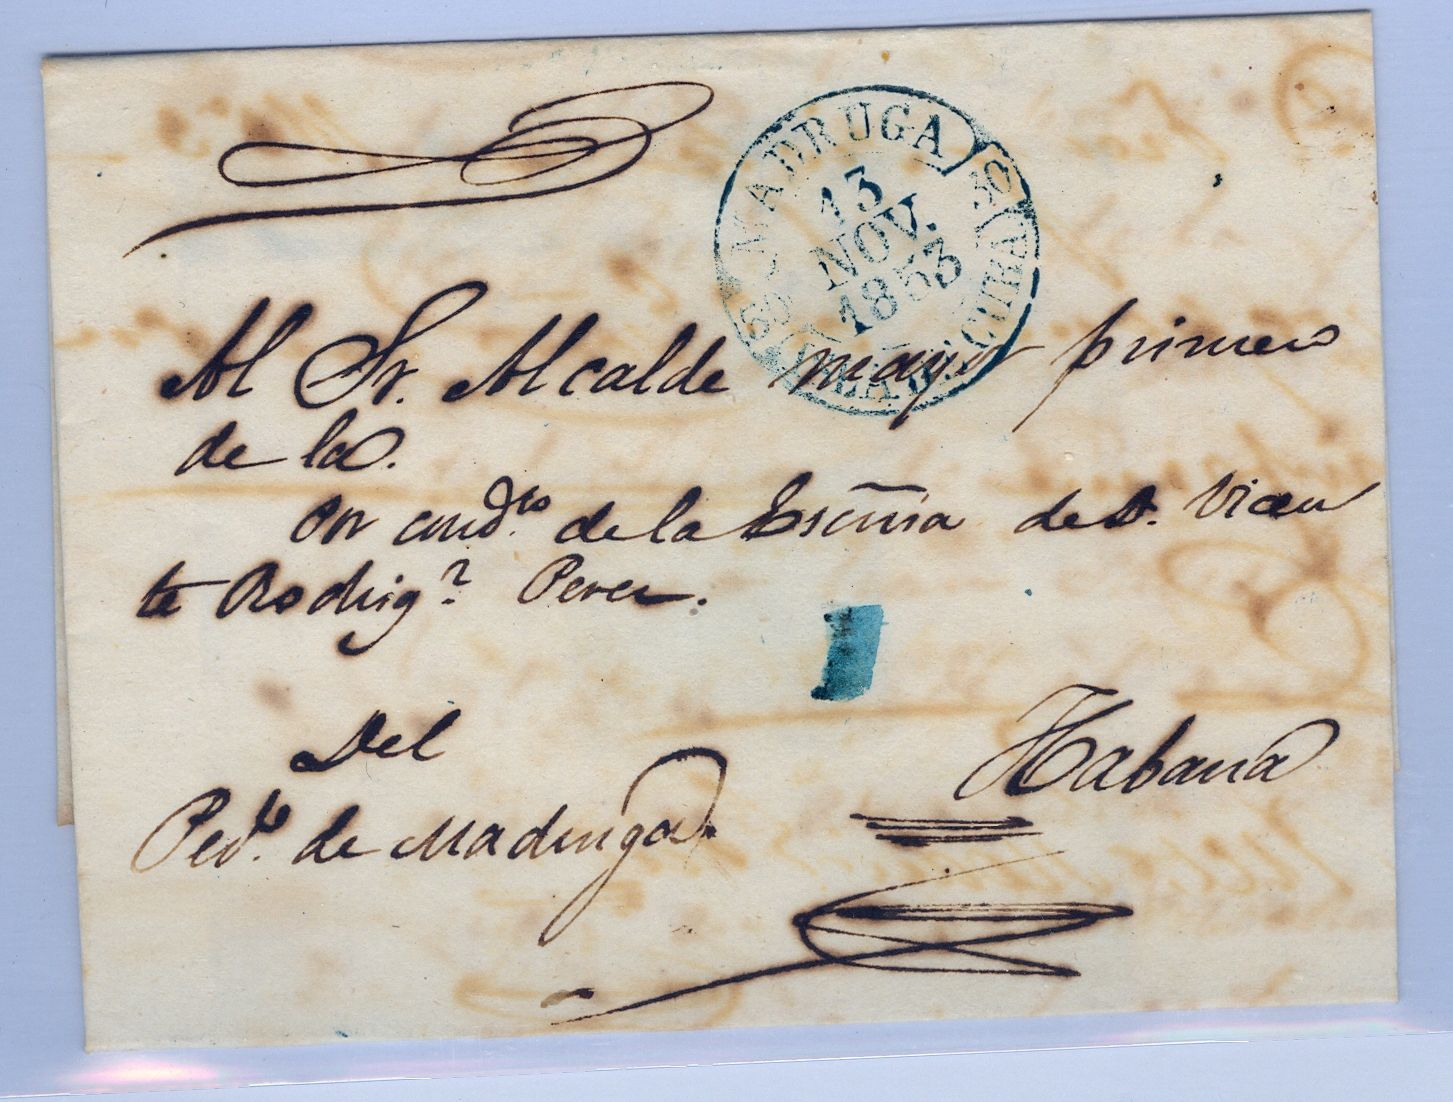 MADRUGA
13
NOV.
1853
ISLA DE CUBA
Al Sr. Alcalde mayor primero
de la.
Por cond.to de la Escňia de D. Vicen
te Rodrig.z Perez.
Del
Ped.o de Madruga.
Habana